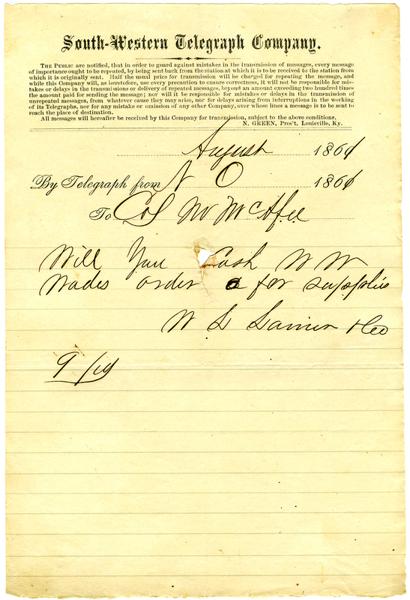 South-Western Telegraph Company.
THE PUBLIC are notified, that in order to guard against mistakes in the transmission of messages, every message
of importance ought to be repeated, by being sent back from the station at which it is to be received to the station from
which it is originally sent. Half the usual price for transmission will be charged for repeating the message, and
while this Company will, as heretofore, use every precaution to ensure correctness, it will not be responsible for mis-
takes or delays in the transmissions or delivery of repeated messages, beyond an amount exceeding two hundred times
the amount paid for sending the message; nor will it be responsible for mistakes or delays in the transmission of
unrepeated messages, from whatever cause they may arise, nor for delays arising from interruptions in the working
of its Telegraphs, nor for any mistake or omission of any other Company, over whose lines a message is to be sent to
reach the place of destination.
All messages will hereafter be received by this Company for transmission, subject to the above conditions.
N. GREEN, Pres't, Louisville, Ky.
August 186
By Telegraph from N O 186
To Col M McAfee
Will You Cash W W
Wades order for supplies
W L Lanier & Co
9/19